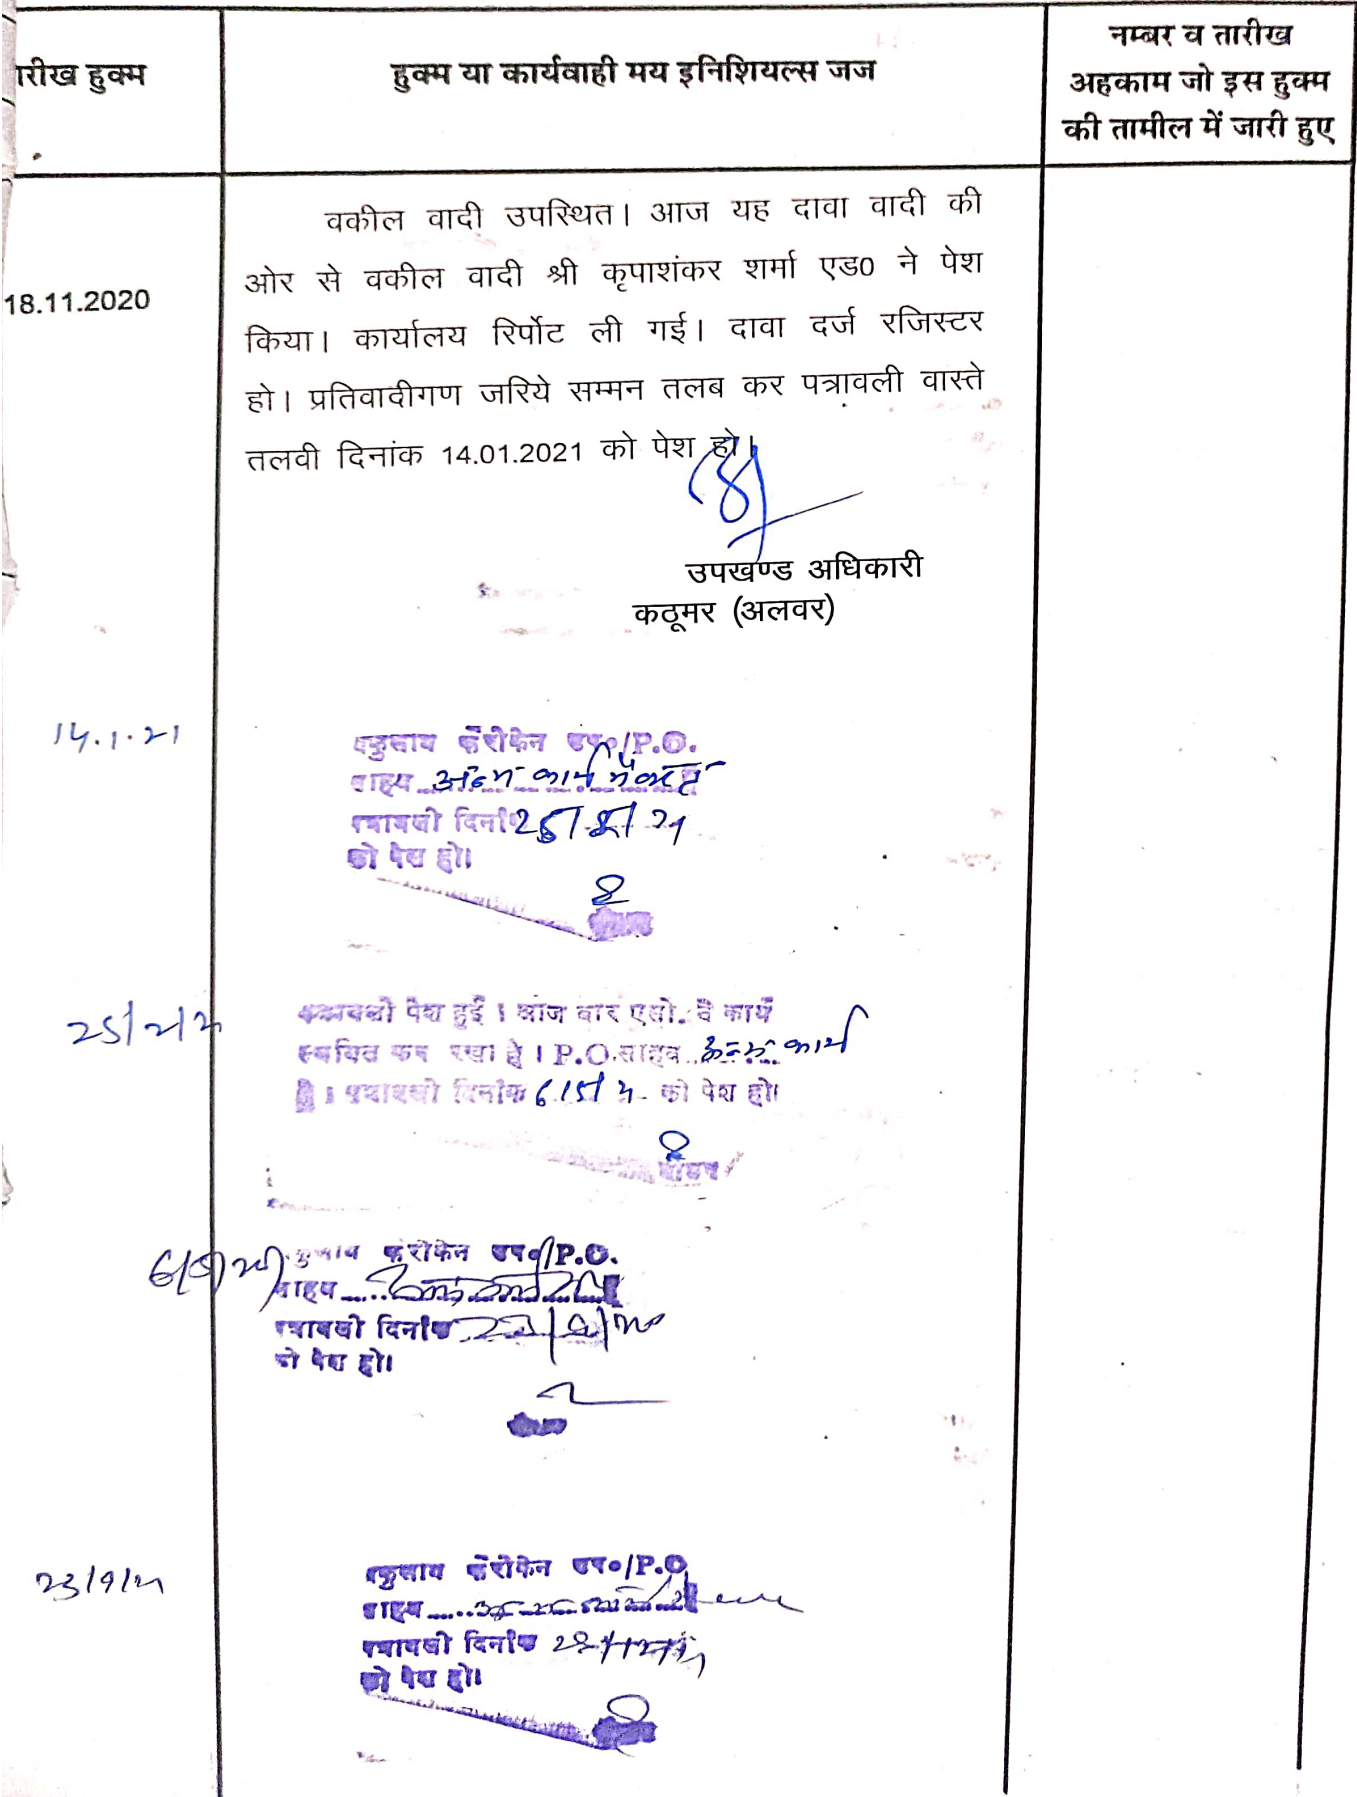 नम्बर व तारीख
ारीख हुक्म हुक्म या कार्यवाही मय इनिशियल्स जज अहकाम जो इस हुक्म
की तामील में जारी हुए
वकील वादी उपस्थित। आज यह दावा वादी की
ओर से वकील वादी श्री कृपाशंकर शर्मा एड0 ने पेश
18.11.2020
किया। कार्यालय रिर्पोट ली गई। दावा दर्ज रजिस्टर
हो। प्रतिवादीगण जरिये सम्मन तलब कर पत्रावली वास्ते
तलवी दिनांक 14.01.2021 को पेश हो।
उपखण्ड अधिकारी
कठूमर (अलवर)
14.1.21
फरीकेन उप०/P.O.
साहब अन्य कार्य में व्यस्त
पत्रावली दिनांक
को पेश हो।
25/2/21
पत्रावली पेश हुई। आज बार एसो. ने कार्य
स्थगित कर रखा है। P.O. साहब अन्य कार्य
है। पत्रावली दिनांक 6/5/21 को पेश हो।
फरीकेन उप०/P.O.
साहब
पत्रावली दिनांक
को पेश हो।
23/9/21
फरीकेन उप०/P.O.
साहब
पत्रावली दिनांक
को पेश हो।